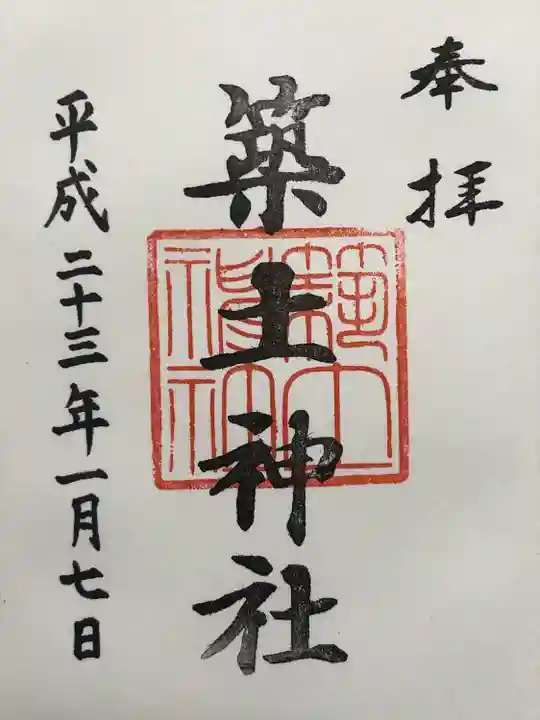 奉拝
築土神社
平成二十三年一月七日